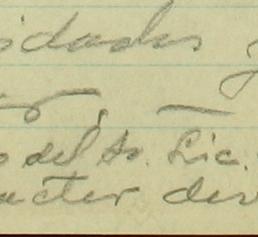 idades
o del Sr. Lic.
acter des